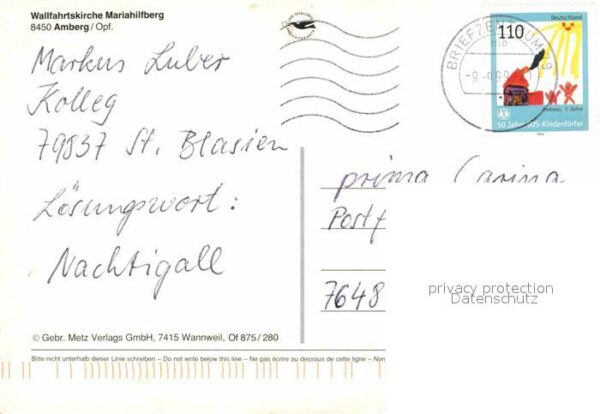 Wallfahrtskirche Mariahilfberg
8450 Amberg / Opf.
Markus Luber
Kolleg
79837 St. Blasien
Lösungswort:
Nachtigall
© Gebr. Metz Verlags GmbH, 7415 Wannweil, Of 875 / 280
BRIEFZENTRUM
110
Deutschland
50 Jahre SOS-Kinderdörfer
prima Carina
Postf
7648
privacy protection
Datenschutz
Bitte nicht unterhalb dieser Linie schreiben – Do not write below this line – Ne pas écrire au dessous de cette ligne – Non